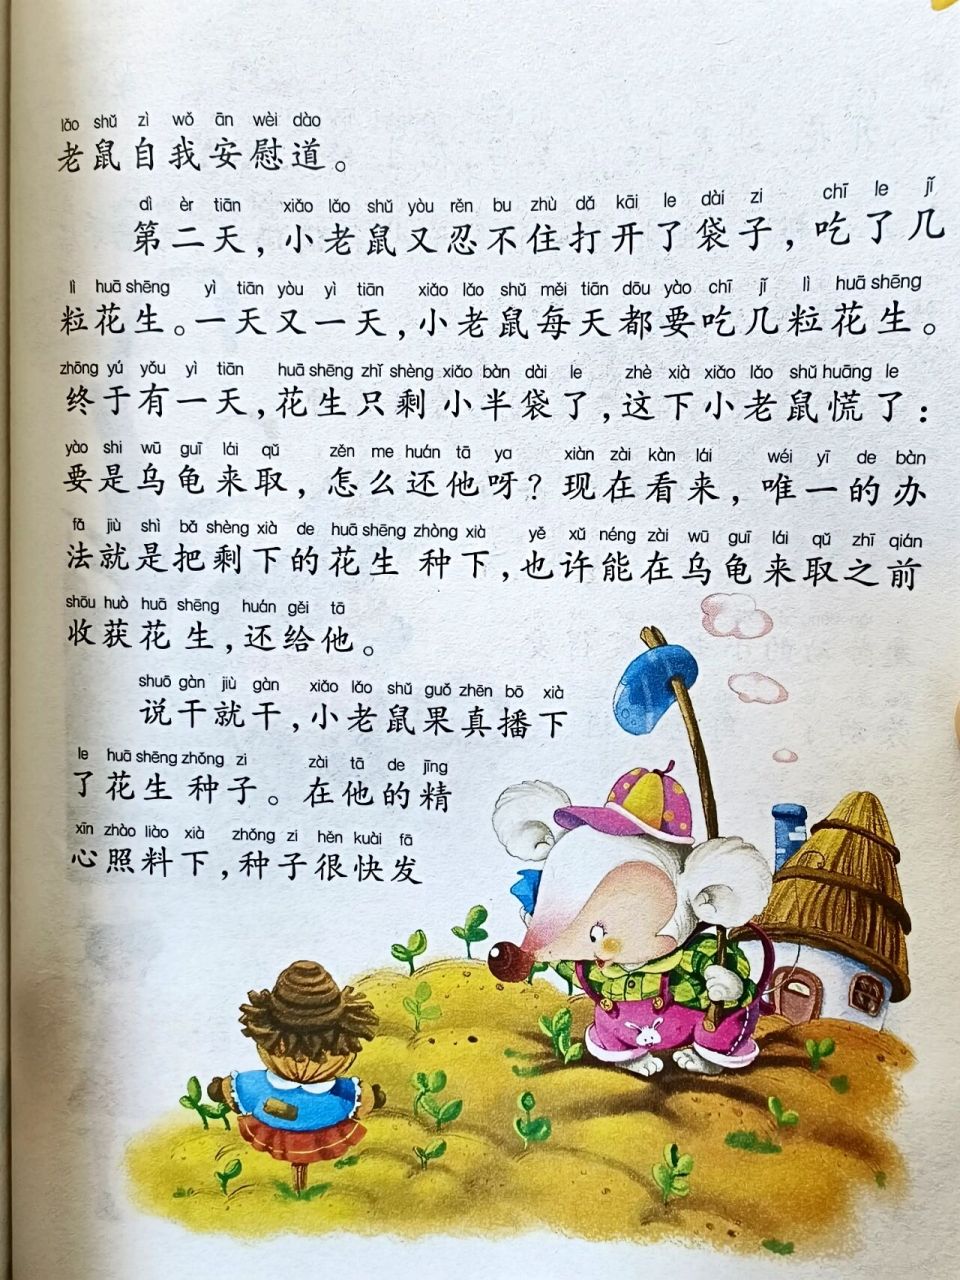 lǎo shǔ zì wǒ ān wèi dào
老鼠自我安慰道。
dì èr tiān xiǎo lǎo shǔ yòu rěn bu zhù dǎ kāi le dài zi chī le jǐ
第二天，小老鼠又忍不住打开了袋子，吃了几
lì huā shēng yì tiān yòu yì tiān xiǎo lǎo shǔ měi tiān dōu yào chī jǐ lì huā shēng
粒花生。一天又一天，小老鼠每天都要吃几粒花生。
zhōng yú yǒu yì tiān huā shēng zhǐ shèng xiǎo bàn dài le zhè xià xiǎo lǎo shǔ huāng le
终于有一天，花生只剩小半袋了，这下小老鼠慌了：
yào shi wū guī lái qǔ zěn me huán tā ya xiàn zài kàn lái wéi yī de bàn
要是乌龟来取，怎么还他呀？现在看来，唯一的办
fǎ jiù shì bǎ shèng xià de huā shēng zhòng xià yě xǔ néng zài wū guī lái qǔ zhī qián
法就是把剩下的花生种下，也许能在乌龟来取之前
shōu huò huā shēng huán gěi tā
收获花生，还给他。
shuō gàn jiù gàn xiǎo lǎo shǔ guǒ zhēn bō xià
说干就干，小老鼠果真播下
le huā shēng zhǒng zi zài tā de jīng
了花生种子。在他的精
xīn zhào liào xià zhǒng zi hěn kuài fā
心照料下，种子很快发